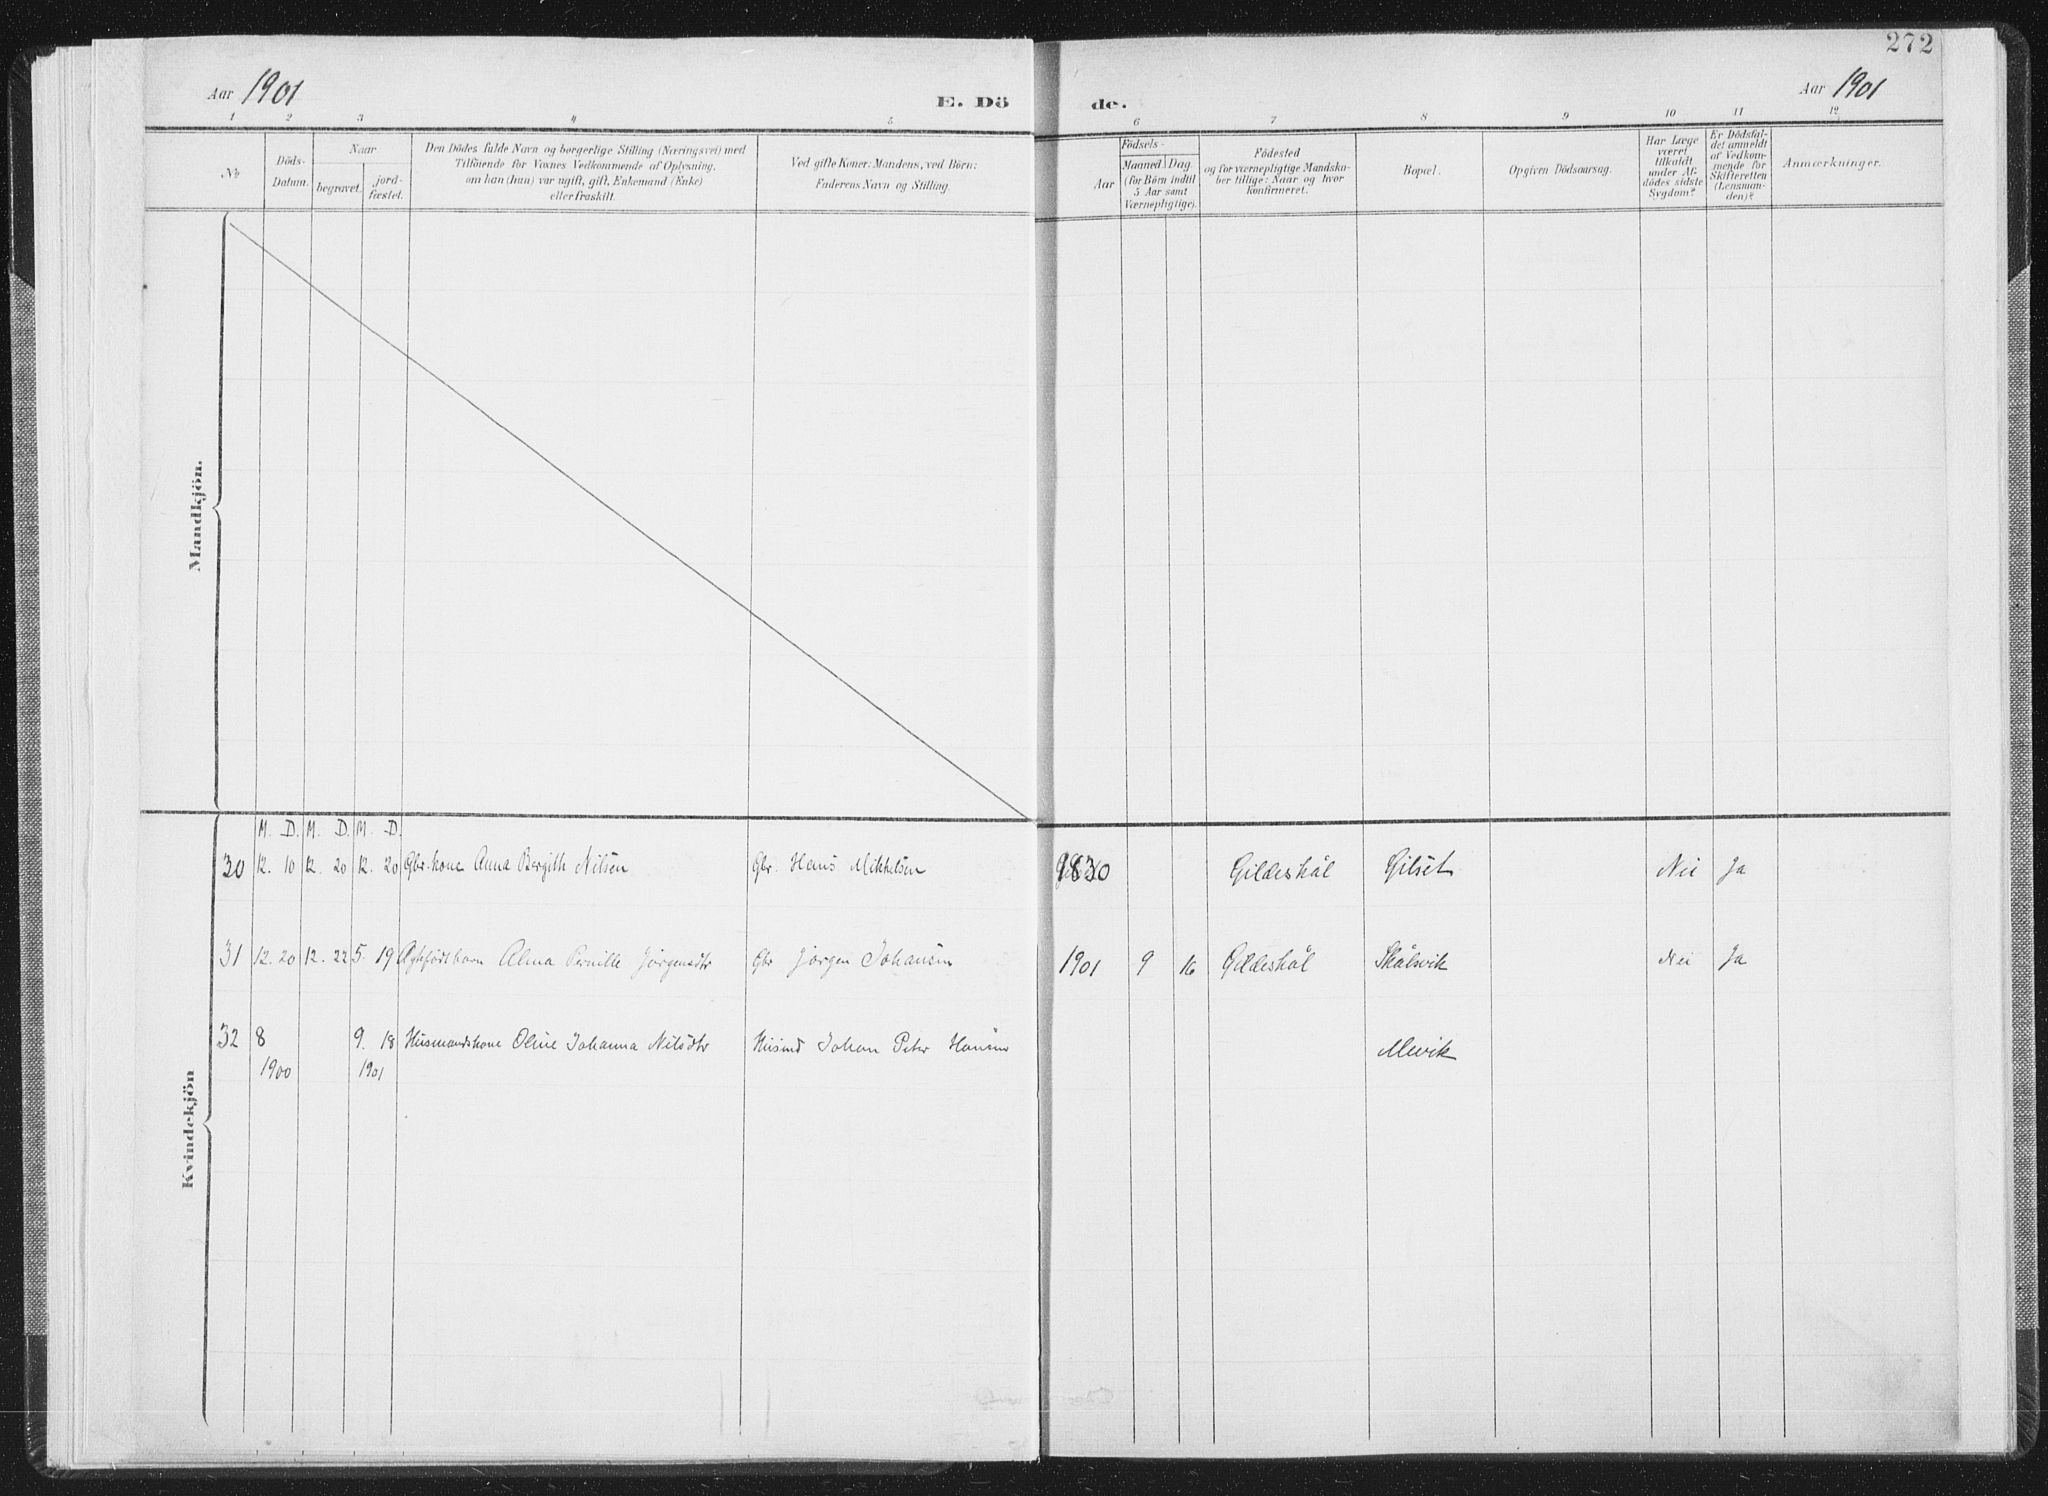 272
Aar 1901
E. Dö
de.
Aar 1901
1 2 3 4 5 6 7 8 9 10 11 12
№
Döds-
Datum.
Naar
begravet.
jord-
fæstet.
Den Dödes fulde Navn og borgerlige Stilling (Næringsvei) med
Tilföiende for Voxnes Vedkommende af Oplysning,
om han (hun) var ugift, gift, Enkemand (Enke)
eller fraskilt.
Ved gifte Koner: Mandens, ved Börn:
Faderens Navn og Stilling.
Födsels-
Aar
Maaned. Dag.
(for Börn indtil
5 Aar samt
Værnepligtige).
Födested
og for værnepligtige Mandska-
ber tillige: Naar og hvor
konfirmeret.
Bopæl.
Opgiven Dödsaarsag.
Har Læge
været
tilkaldt
under Af-
dödes sidste
Sygdom?
Er Dödsfal-
det anmeldt
af Vedkom-
mende for
Skifteretten
(Lensman-
den)?
Anmærkninger.
Mandkjön.
Kvindekjön
M. D. M. D. M. D.
30 12. 10 12. 20 12. 20 Gbr.kone Anna Bergith Nilsen Gbr. Hans Mikkelsen 1830 Gildeskål Gilset Nei Ja
31 12. 20 12. 22 5. 19 Alma Pernille Jørgensdtr Gbr Jørgen Johansen 1901 9 16 Gildeskål Skålsvik Nei Ja
32 8 9. 18 Husmandskone Oline Johanna Nilsdtr Husmd Johan Peter Hansen Mevik
1900 1901